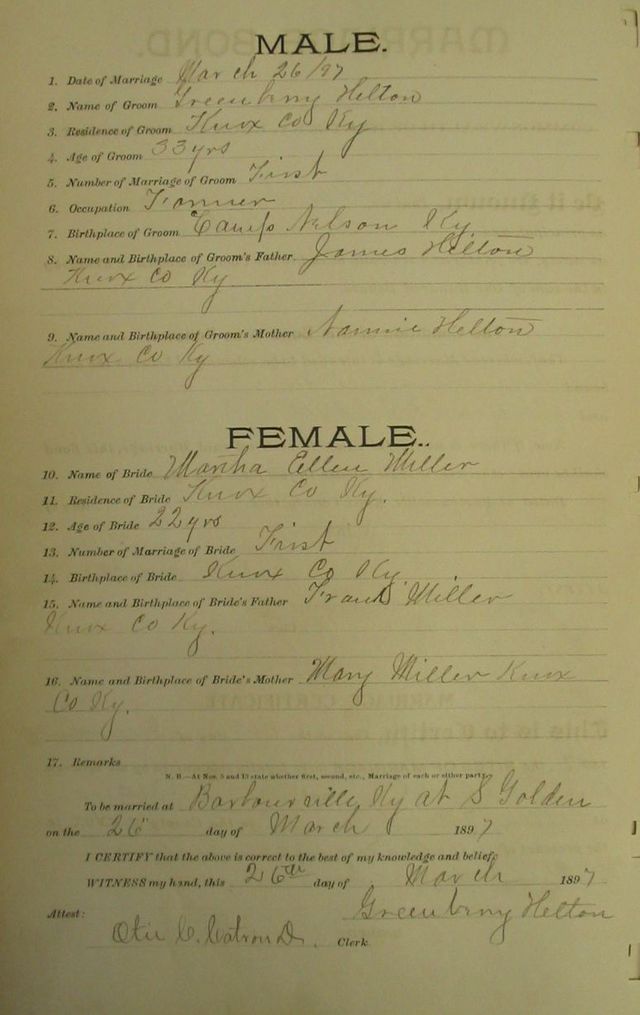 MALE.
1. Date of Marriage March 26/97
2. Name of Groom Greenberry Helton
3. Residence of Groom Knox Co Ky
4. Age of Groom 33 yrs
5. Number of Marriage of Groom First
6. Occupation Farmer
7. Birthplace of Groom Camp Nelson Ky.
8. Name and Birthplace of Groom's Father James Helton
Knox Co Ky
9. Name and Birthplace of Groom's Mother Nannie Helton
Knox Co Ky
FEMALE..
10. Name of Bride Martha Ellen Miller
11. Residence of Bride Knox Co Ky.
12. Age of Bride 22 yrs
13. Number of Marriage of Bride First
14. Birthplace of Bride Knox Co Ky.
15. Name and Birthplace of Bride's Father Frank Miller
Knox Co Ky.
16. Name and Birthplace of Bride's Mother Mary Miller Knox
Co Ky.
17. Remarks
N. B.—At Nos. 5 and 13 state whether first, second, etc., Marriage of each or either party.
To be married at Barbourville, Ky at S Golden
on the 26" day of March 1897
I CERTIFY that the above is correct to the best of my knowledge and belief.
WITNESS my hand, this 26th day of March 1897
Greenberry Helton
Attest:
Clerk.